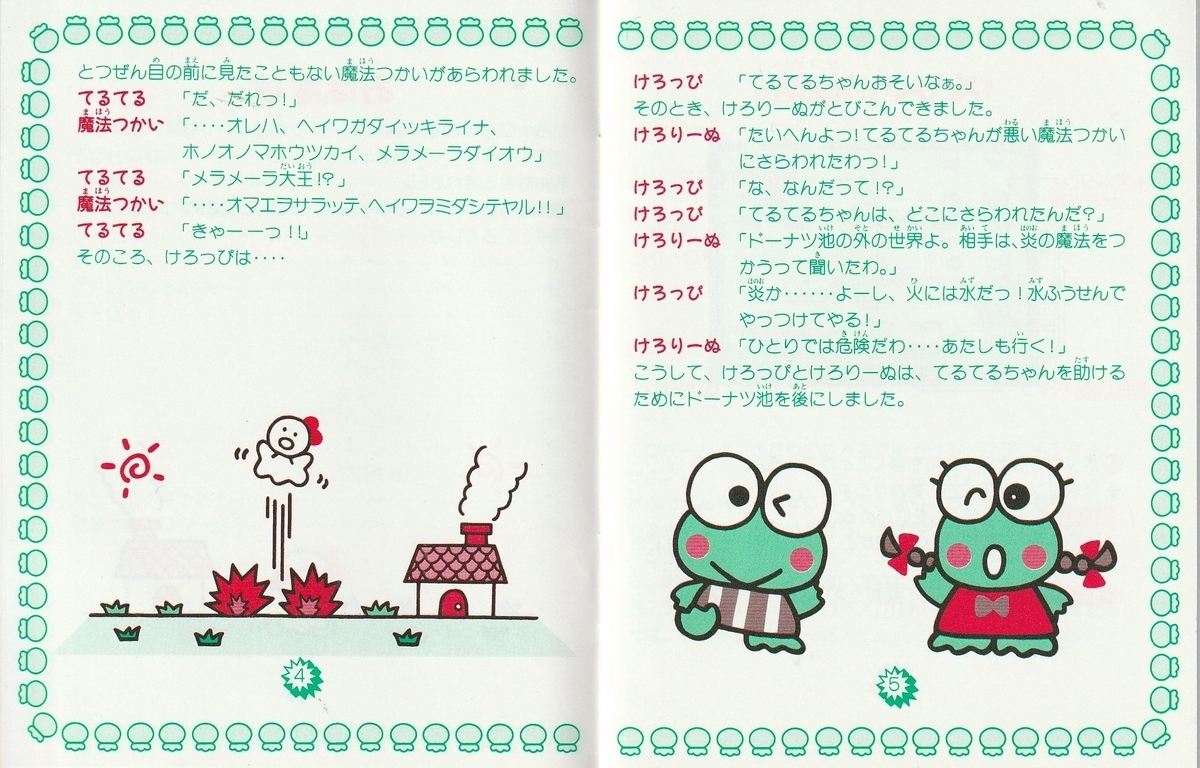 とつぜん目の前に見たこともない魔法つかいがあらわれました。
てるてる 「だ、だれっ!」
魔法つかい 「‥‥オレハ、ヘイワガダイッキライナ、
ホノオノマホウツカイ、メラメーラダイオウ」
てるてる 「メラメーラ大王!?」
魔法つかい 「‥‥オマエヲサラッテ、ヘイワヲミダシテヤル!!」
てるてる 「きゃーーっ!!」
そのころ、けろっぴは‥‥
4
けろっぴ 「てるてるちゃんおそいなぁ。」
そのとき、けろりーぬがとびこんできました。
けろりーぬ 「たいへんよっ!てるてるちゃんが悪い魔法つかい
にさらわれたわっ!」
けろっぴ 「な、なんだって!?」
けろっぴ 「てるてるちゃんは、どこにさらわれたんだ?」
けろりーぬ 「ドーナツ池の外の世界よ。相手は、炎の魔法をつ
かうって聞いたわ。」
けろっぴ 「炎か‥‥‥よーし、火には水だっ!水ふうせんで
やっつけてやる!」
けろりーぬ 「ひとりでは危険だわ‥‥あたしも行く!」
こうして、けろっぴとけろりーぬは、てるてるちゃんを助ける
ためにドーナツ池を後にしました。
5